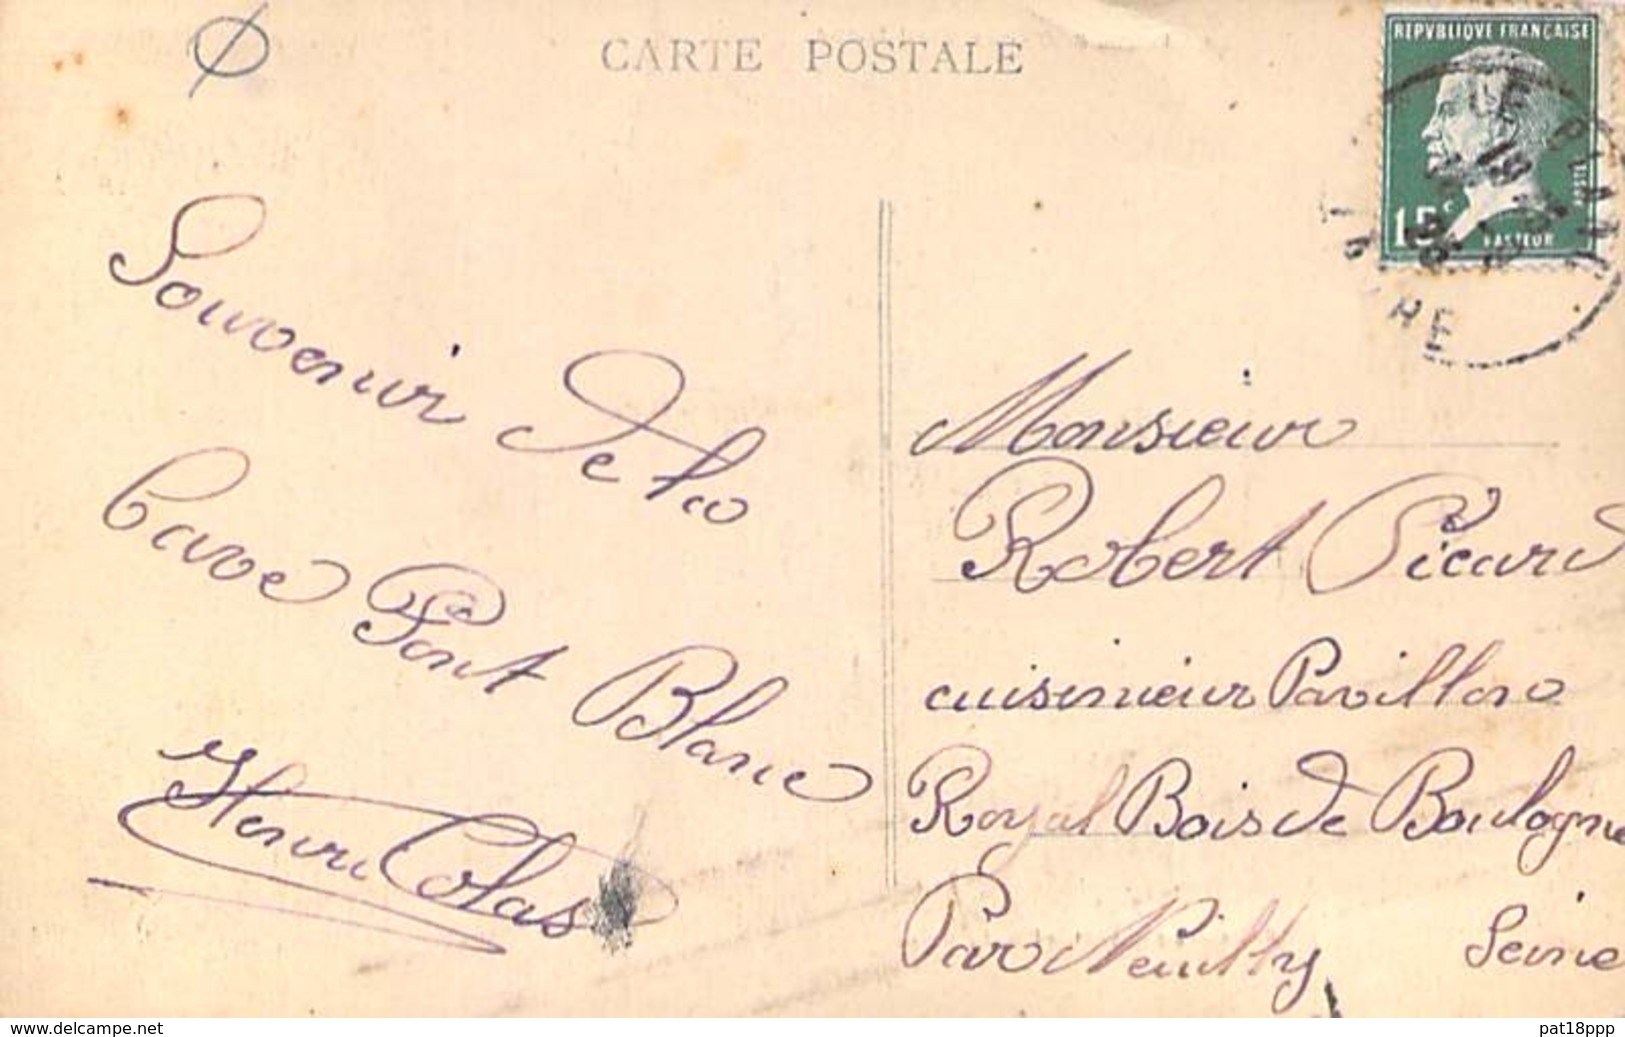 CARTE POSTALE
REPVBLIQVE FRANCAISE
POSTES
15c
PASTEUR
LE BLANC
INDRE
Souvenir de la
Cave Pont Blanc
Henri Colas
Monsieur
Robert Picard
cuisinieur Pavillon
Royal Bois de Boulogne
Par Neuilly Seine
www.delcampe.net
pat18ppp